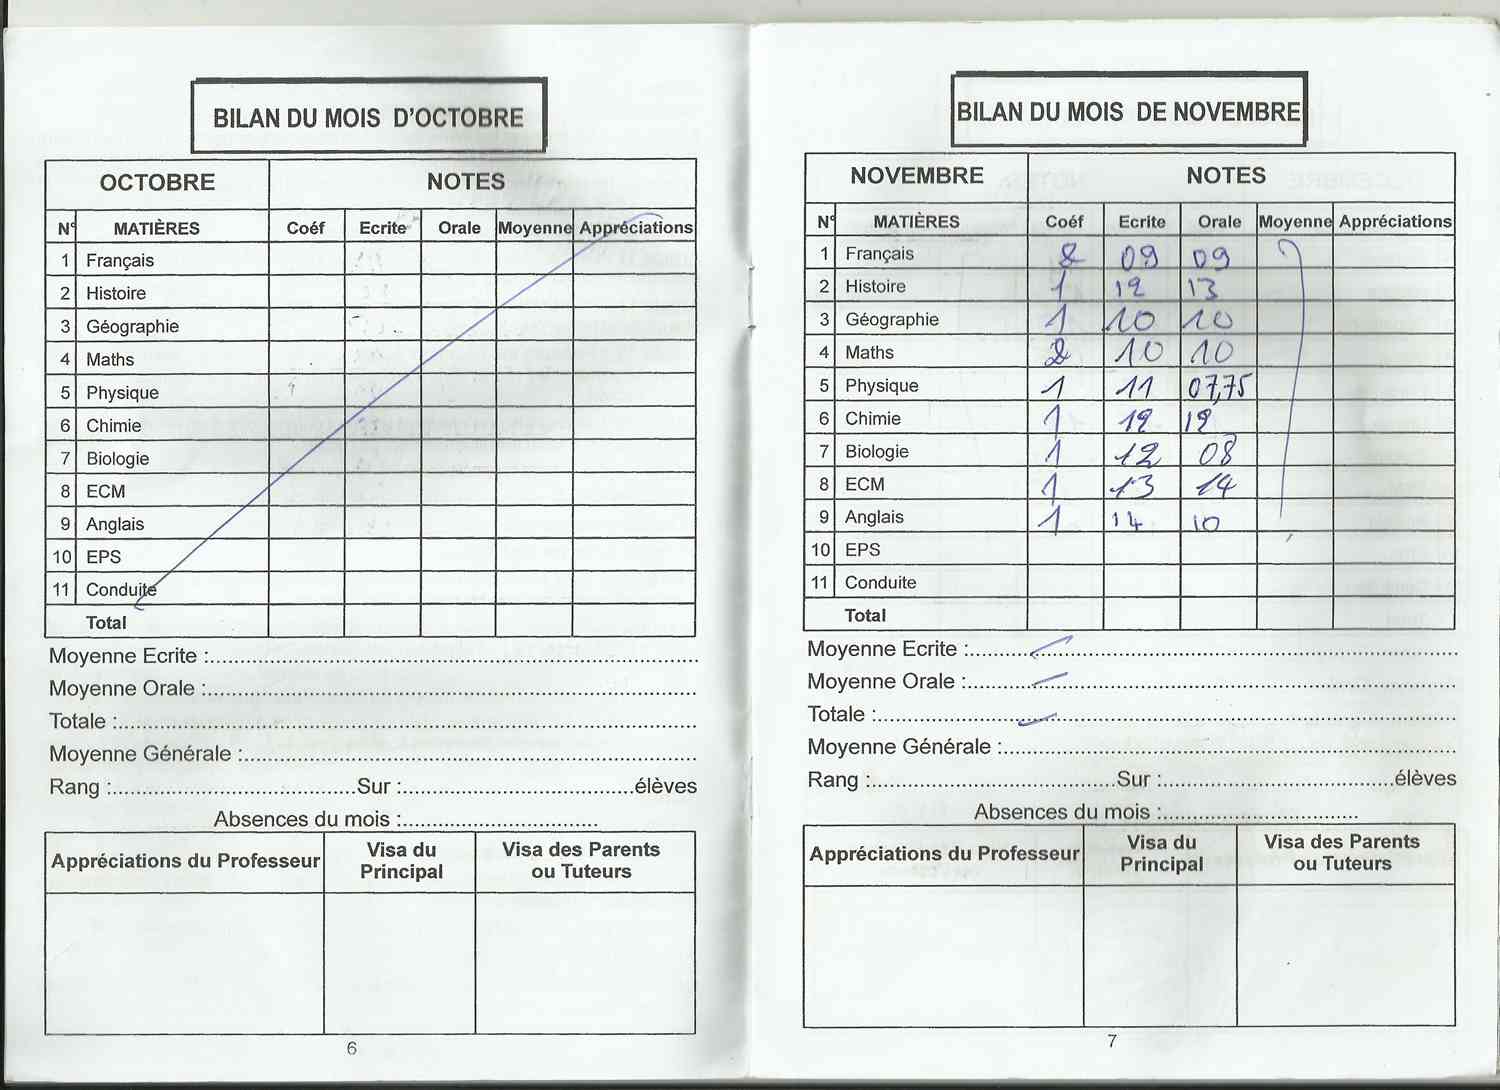 BILAN DU MOIS D'OCTOBRE
OCTOBRE NOTES
N° MATIÈRES Coéf Ecrite Orale Moyenne Appréciations
1 Français
2 Histoire
3 Géographie
4 Maths
5 Physique
6 Chimie
7 Biologie
8 ECM
9 Anglais
10 EPS
11 Conduite
Total
Moyenne Ecrite :
Moyenne Orale :
Totale :
Moyenne Générale :
Rang : Sur : élèves
Absences du mois :
Appréciations du Professeur Visa du Principal Visa des Parents ou Tuteurs
6
BILAN DU MOIS DE NOVEMBRE
NOVEMBRE NOTES
N° MATIÈRES Coéf Ecrite Orale Moyenne Appréciations
1 Français 2 09 09
2 Histoire 1 12 13
3 Géographie 1 10 10
4 Maths 2 10 10
5 Physique 1 11 07,75
6 Chimie 1 12 12
7 Biologie 1 12 08
8 ECM 1 13 14
9 Anglais 1 14 10
10 EPS
11 Conduite
Total
Moyenne Ecrite :
Moyenne Orale :
Totale :
Moyenne Générale :
Rang : Sur : élèves
Absences du mois :
Appréciations du Professeur Visa du Principal Visa des Parents ou Tuteurs
7